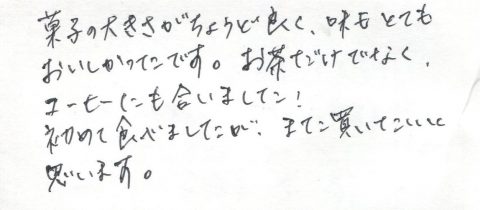 菓子の大きさがちょうど良く、味もとても
おいしかったです。お茶だけでなく、
コーヒーにも合いました！
初めて食べましたが、また買いたいと
思います。